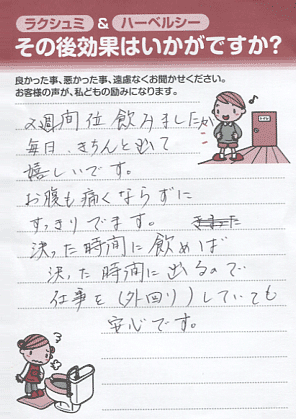 ラクシュミ & ハーベルシー
その後効果はいかがですか?
良かった事、悪かった事、遠慮なくお聞かせください。
お客様の声が、私どもの励みになります。
2週間位飲みましたが
毎日、きちんと出て
嬉しいです。
お腹も痛くならずに
すっきりでます。
決った時間に飲めば
決った時間に出るので
仕事を(外回り)していても
安心です。